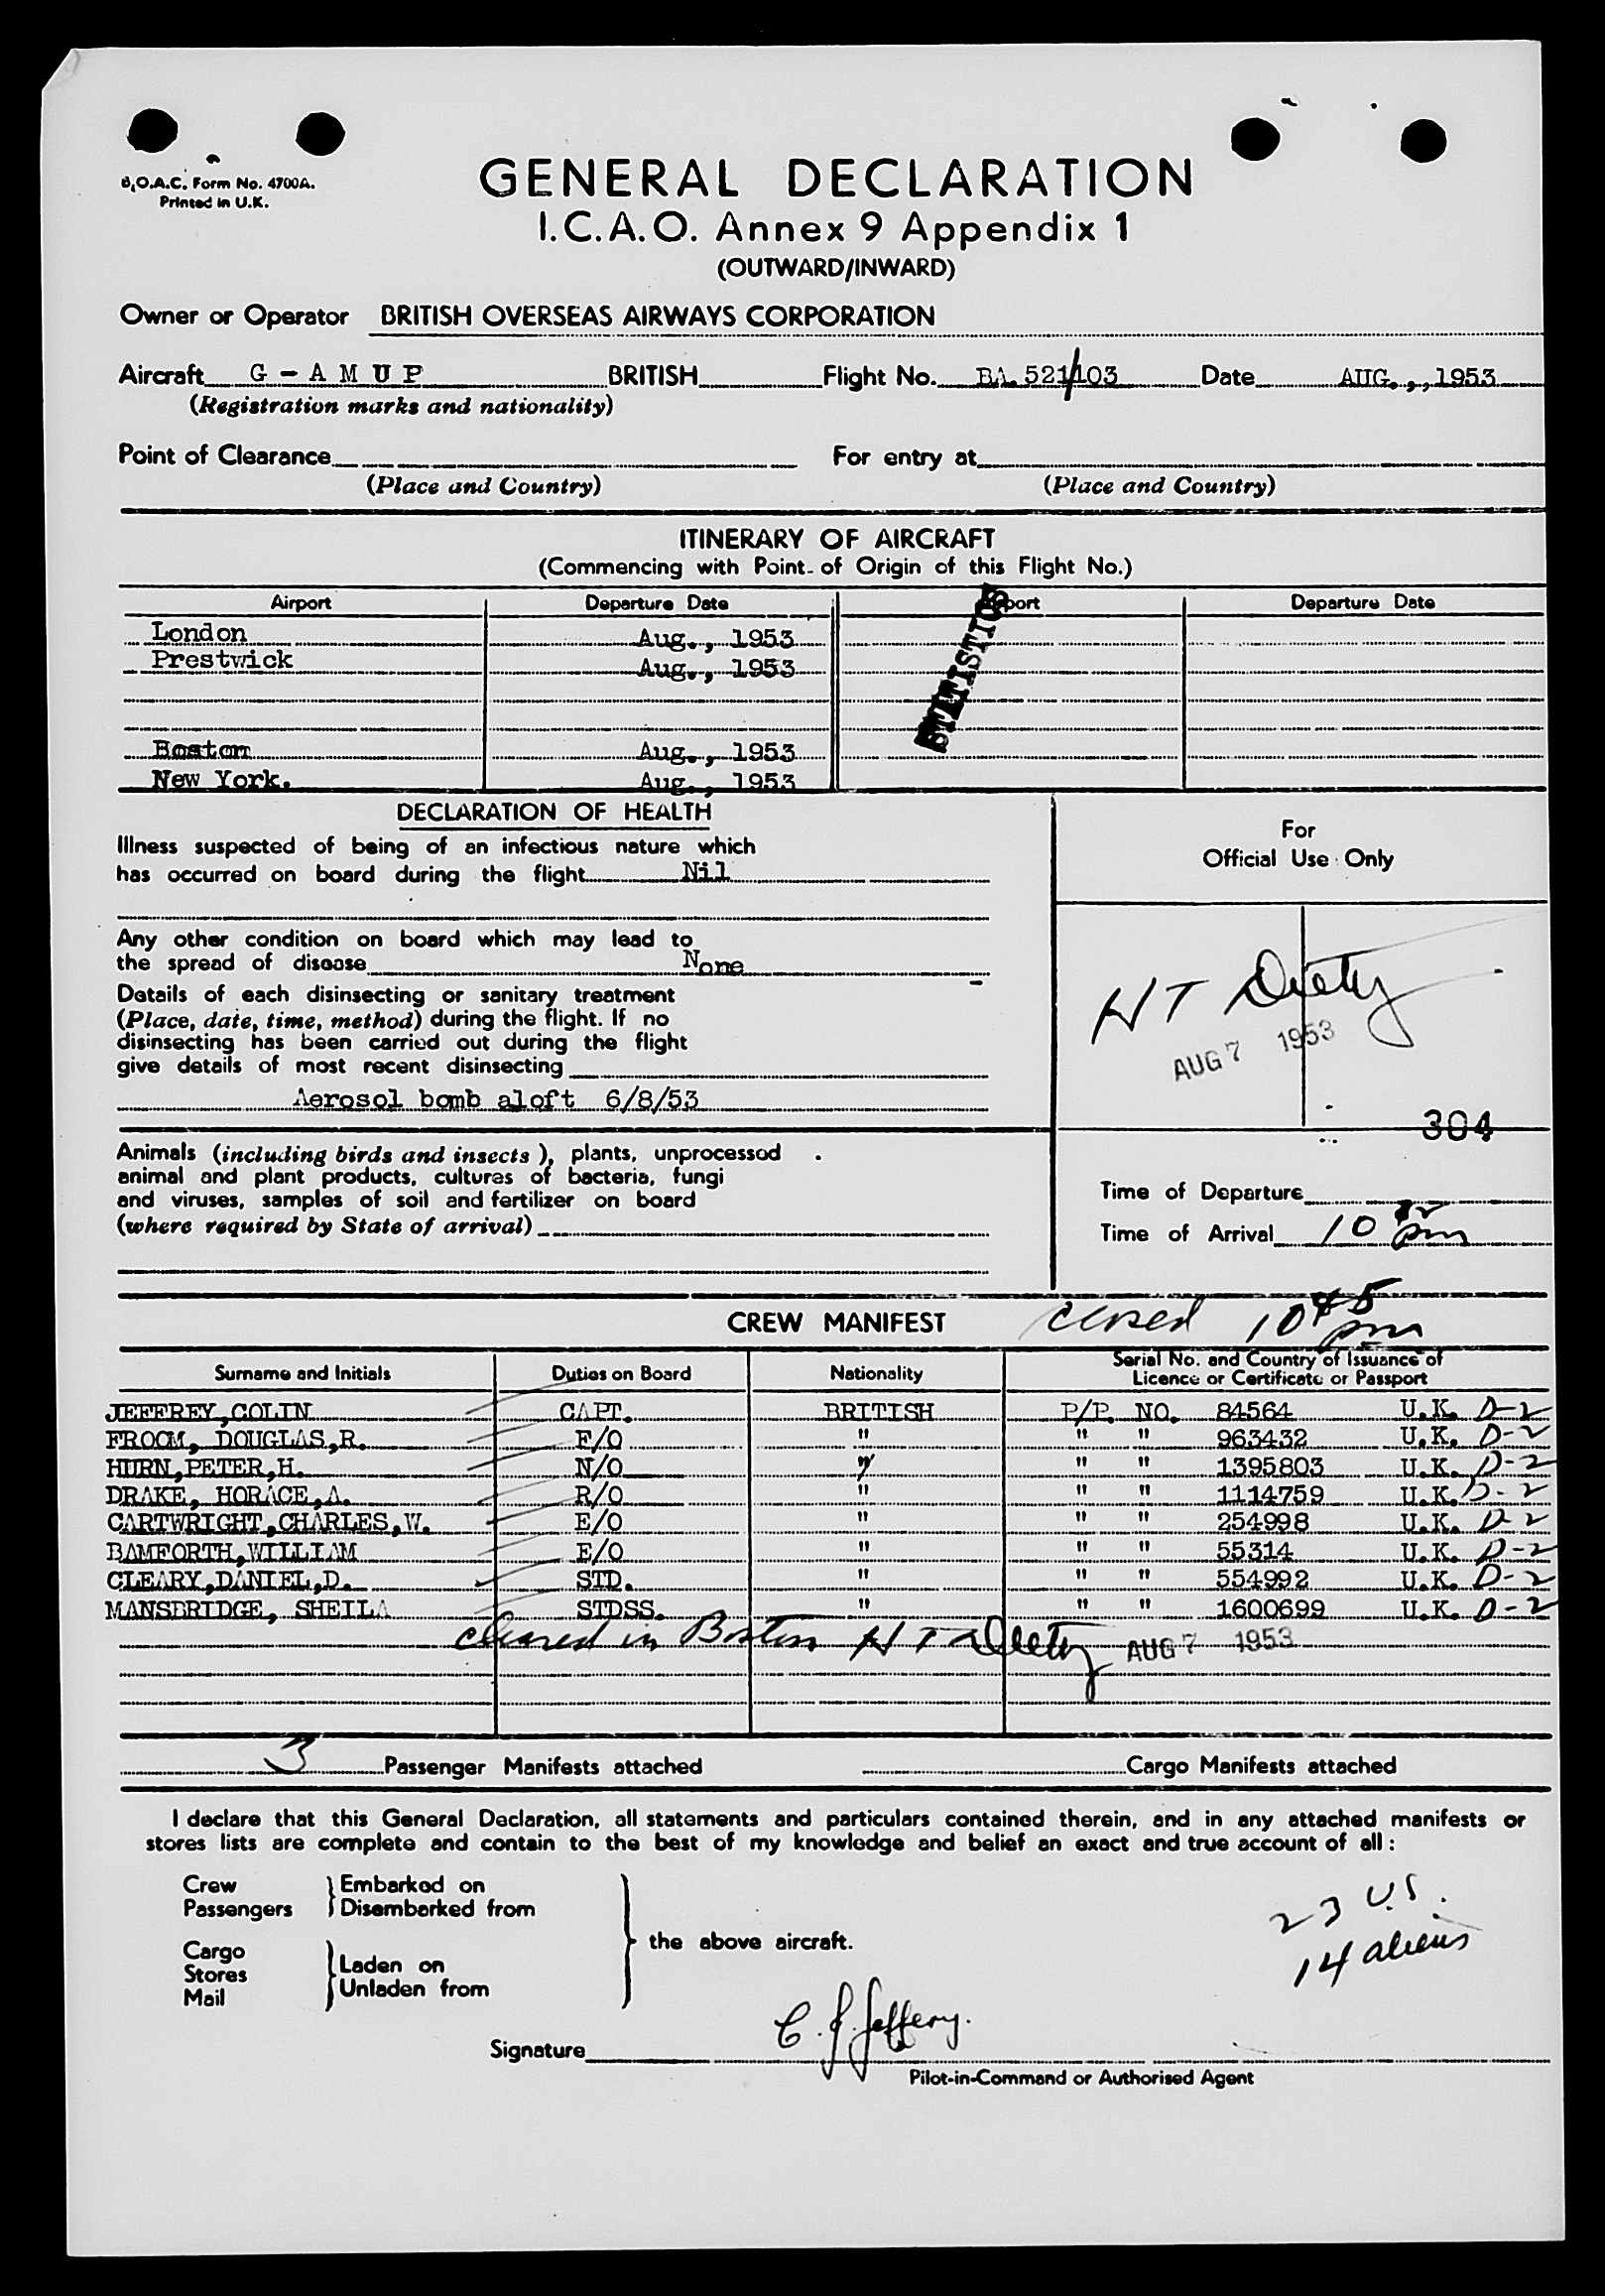 B.O.A.C. Form No. 4700A.
Printed in U.K.
GENERAL DECLARATION
I.C.A.O. Annex 9 Appendix 1
(OUTWARD/INWARD)
Owner or Operator BRITISH OVERSEAS AIRWAYS CORPORATION
Aircraft G - A M U P BRITISH Flight No. BA.521/103 Date AUG. , , 1953
(Registration marks and nationality)
Point of Clearance For entry at
(Place and Country) (Place and Country)
ITINERARY OF AIRCRAFT
(Commencing with Point of Origin of this Flight No.)
Airport Departure Date Airport Departure Date
STATISTICS
London Aug., 1953
Prestwick Aug., 1953
Boston Aug., 1953
New York. Aug., 1953
DECLARATION OF HEALTH
Illness suspected of being of an infectious nature which
has occurred on board during the flight Nil
Any other condition on board which may lead to
the spread of disease None
Details of each disinsecting or sanitary treatment
(Place, date, time, method) during the flight. If no
disinsecting has been carried out during the flight
give details of most recent disinsecting
Aerosol bomb aloft 6/8/53
Animals (including birds and insects), plants, unprocessed
animal and plant products, cultures of bacteria, fungi
and viruses, samples of soil and fertilizer on board
(where required by State of arrival)
For
Official Use Only
H T
AUG 7 1953
304
Time of Departure
Time of Arrival 10 pm
CREW MANIFEST 10 45 pm
Surname and Initials Duties on Board Nationality Serial No. and Country of Issuance of
Licence or Certificate or Passport
JEFFREY,COLIN CAPT. BRITISH P/P. NO. 84564 U.K. D-2
FROOM, DOUGLAS,R. F/O " " " 963432 U.K. D-2
HURN,PETER,H. N/O " " " 1395803 U.K. D-2
DRAKE, HORACE,A. R/O " " " 1114759 U.K. D-2
CARTWRIGHT,CHARLES,W. E/O " " " 254998 U.K. D-2
BAMFORTH,WILLIAM E/O " " " 55314 U.K. D-2
CLEARY,DANIEL,D. STD. " " " 554992 U.K. D-2
MANSBRIDGE, SHEILA STDSS. " " " 1600699 U.K. D-2
cleared in Boston H T AUG 7 1953
3 Passenger Manifests attached Cargo Manifests attached
I declare that this General Declaration, all statements and particulars contained therein, and in any attached manifests or
stores lists are complete and contain to the best of my knowledge and belief an exact and true account of all :
Crew
Passengers
Embarked on
Disembarked from
Cargo
Stores
Mail
Laden on
Unladen from
the above aircraft.
23 U.S.
14 aliens
Signature C. J. Jeffery.
Pilot-in-Command or Authorised Agent